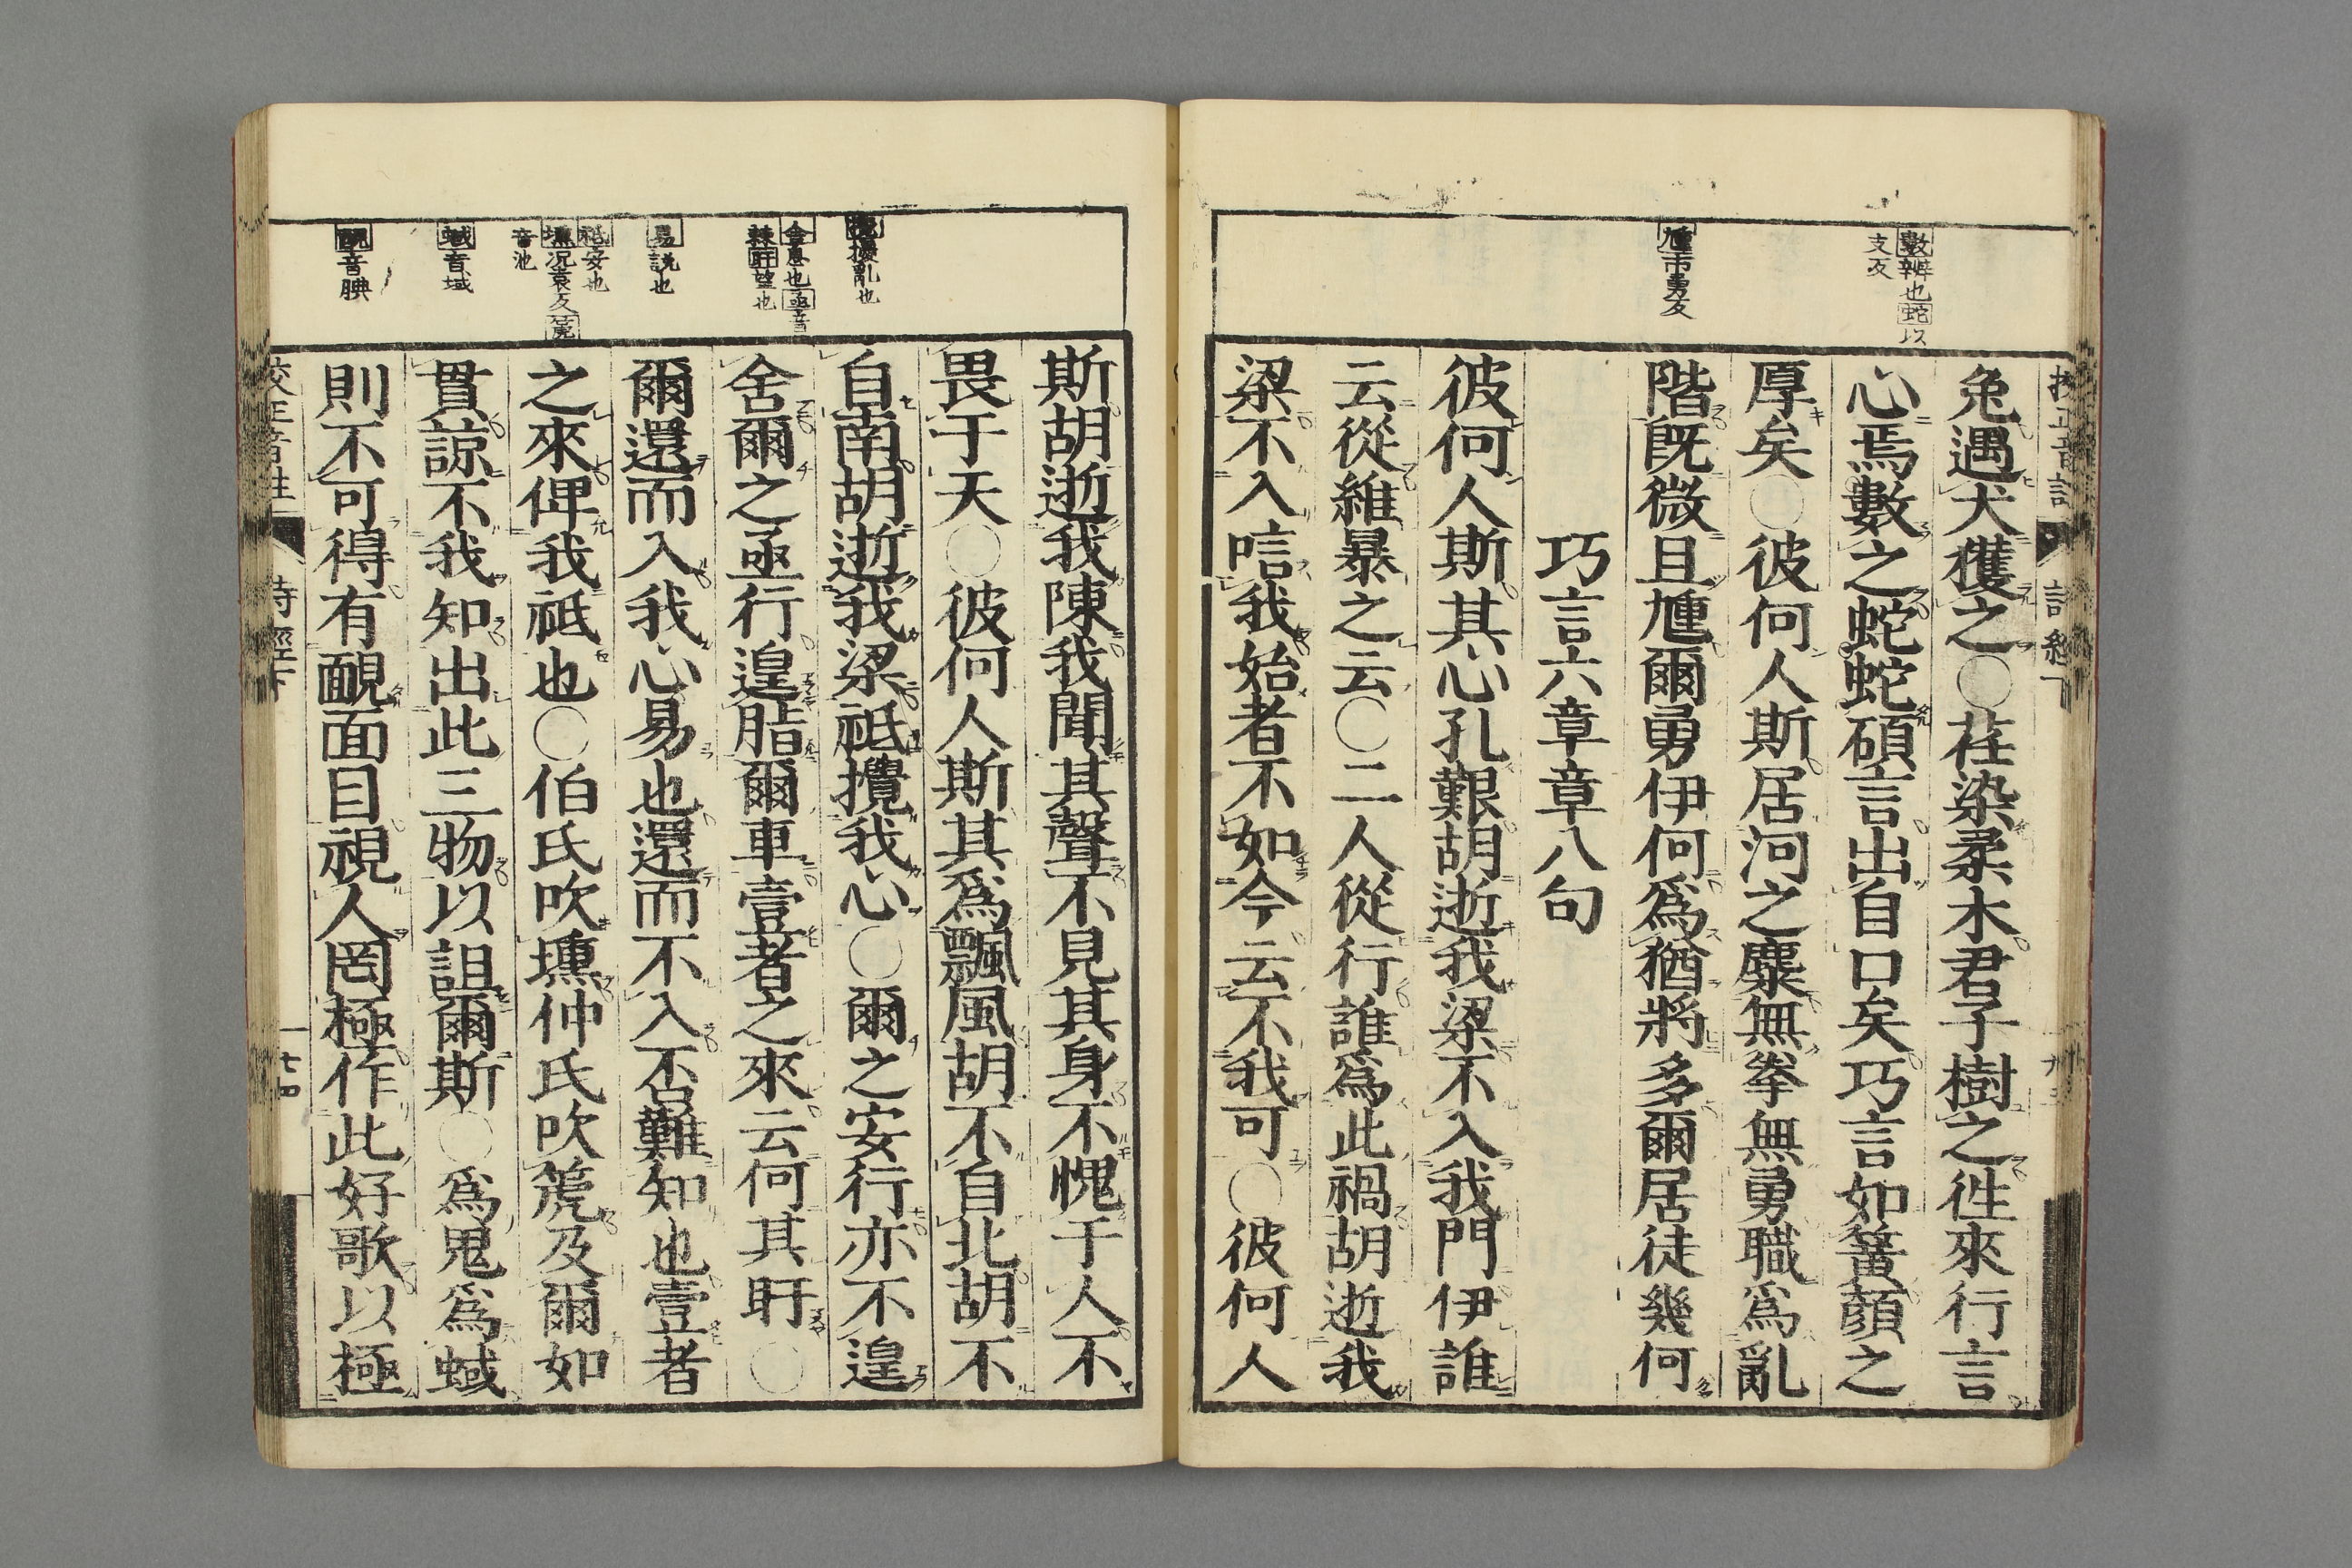 數辨也蛇以
支反
尰市勇反
兔遇犬獲之○荏染柔木君子樹之徃來行言
心焉數之蛇蛇碩言出自口矣巧言如簧顏之
厚矣○彼何人斯居河之麋無拳無勇職爲亂
階旣微且尰爾勇伊何爲猶將多爾居徒幾何
巧言六章章八句
彼何人斯其心孔艱胡逝我梁不入我門伊誰
云從維暴之云○二人從行誰爲此禍胡逝我
梁不入唁我始者不如今云不我可○彼何人
攪擾亂也
舍息也亟音
棘盱望也
易說也
祗安也
壎况袁反篪
音池
蜮音域
靦音腆
斯胡逝我陳我聞其聲不見其身不愧于人不
畏于天○彼何人斯其爲飄風胡不自北胡不
自南胡逝我梁祗攪我心○爾之安行亦不遑
舍爾之亟行遑脂爾車壹者之來云何其盱○
爾還而入我心易也還而不入否難知也壹者
之來俾我祗也○伯氏吹壎仲氏吹篪及爾如
貫諒不我知出此三物以詛爾斯○爲鬼爲蜮
則不可得有靦面目視人罔極作此好歌以極
校正音註 詩經下 七四